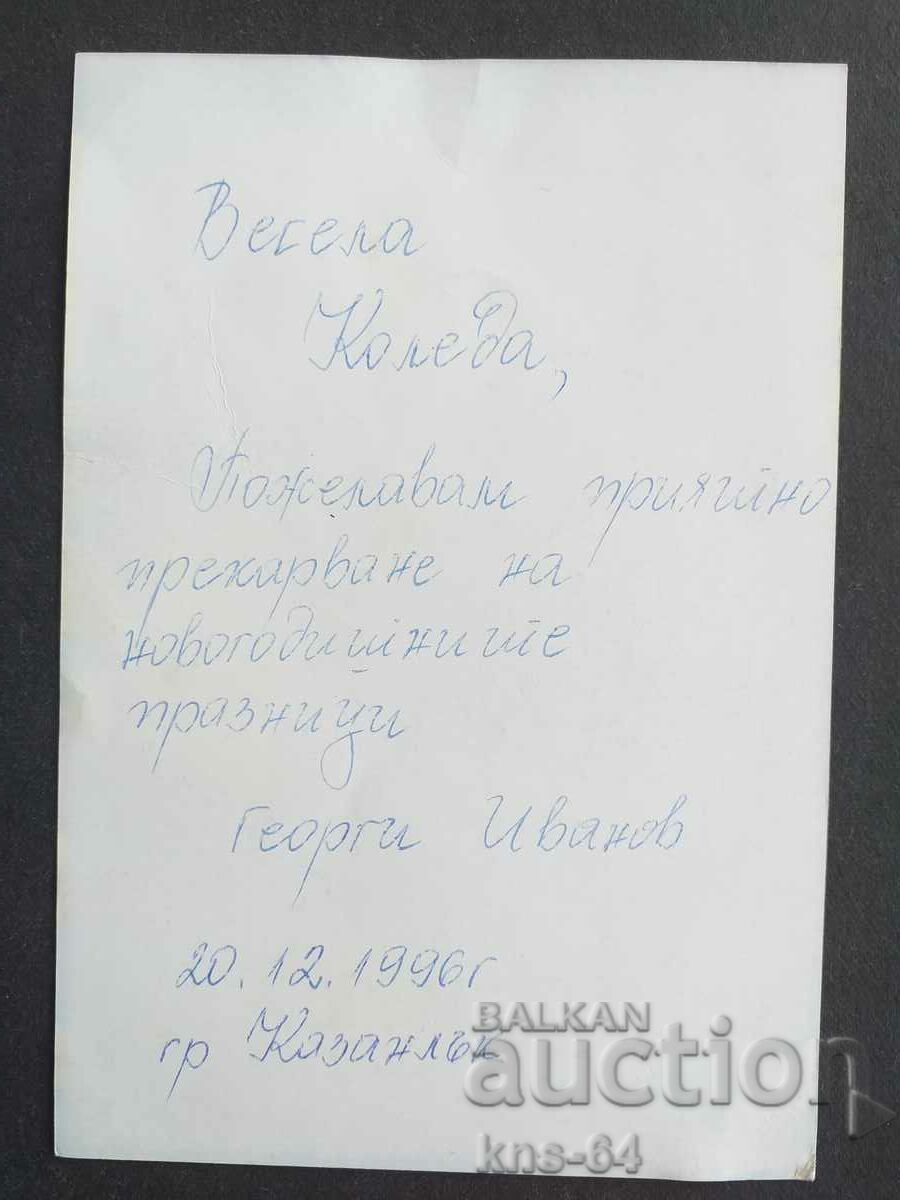 Весела
Коледа,
Пожелавам приятно
прекарване на
новогодишните
празници
Георги Иванов
20.12.1996г
гр Казанлък
BALKAN
auction
kns-64